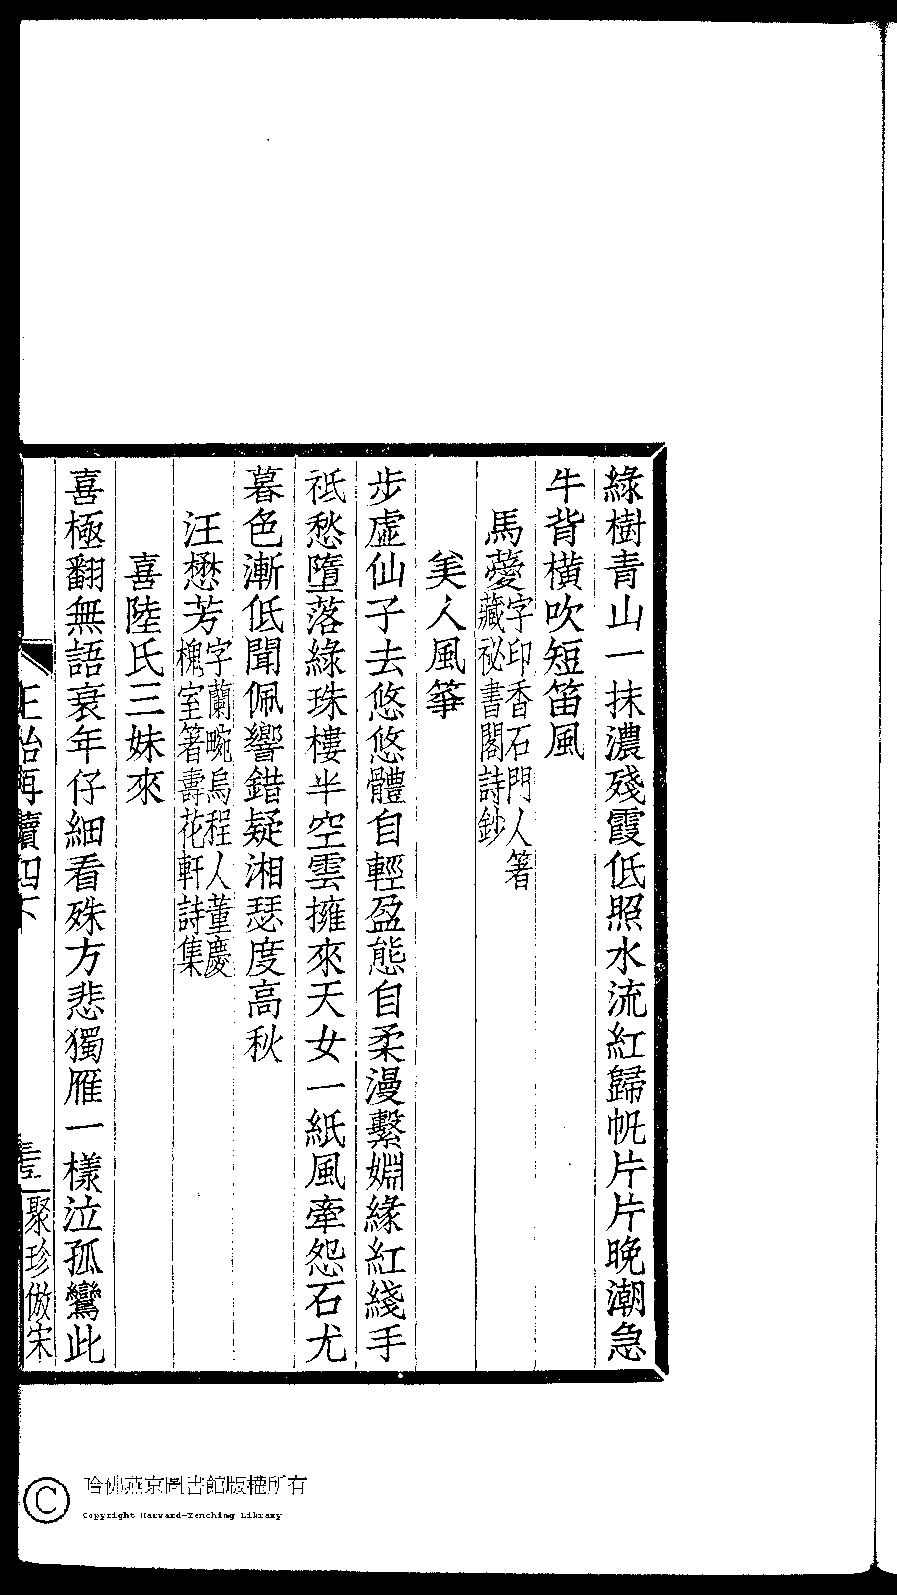 綠樹青山一抹濃殘霞低照水流紅歸帆片片晚潮急
牛背橫吹短笛風
馬薆字印香石門人著藏祕書閣詩鈔
美人風箏
步虛仙子去悠悠體自輕盈態自柔漫繫婣緣紅綫手
祗愁墮落綠珠樓半空雲擁來天女一紙風牽怨石尤
暮色漸低聞佩響錯疑湘瑟度高秋
汪懋芳字蘭畹烏程人董慶槐室箸壽花軒詩集
喜陸氏三妹來
喜極翻無語衰年仔細看殊方悲獨雁一樣泣孤鸞此
正始再續四下
聚珍倣宋
哈佛燕京圖書館版權所有
Copyright Harvard-Yenching Library